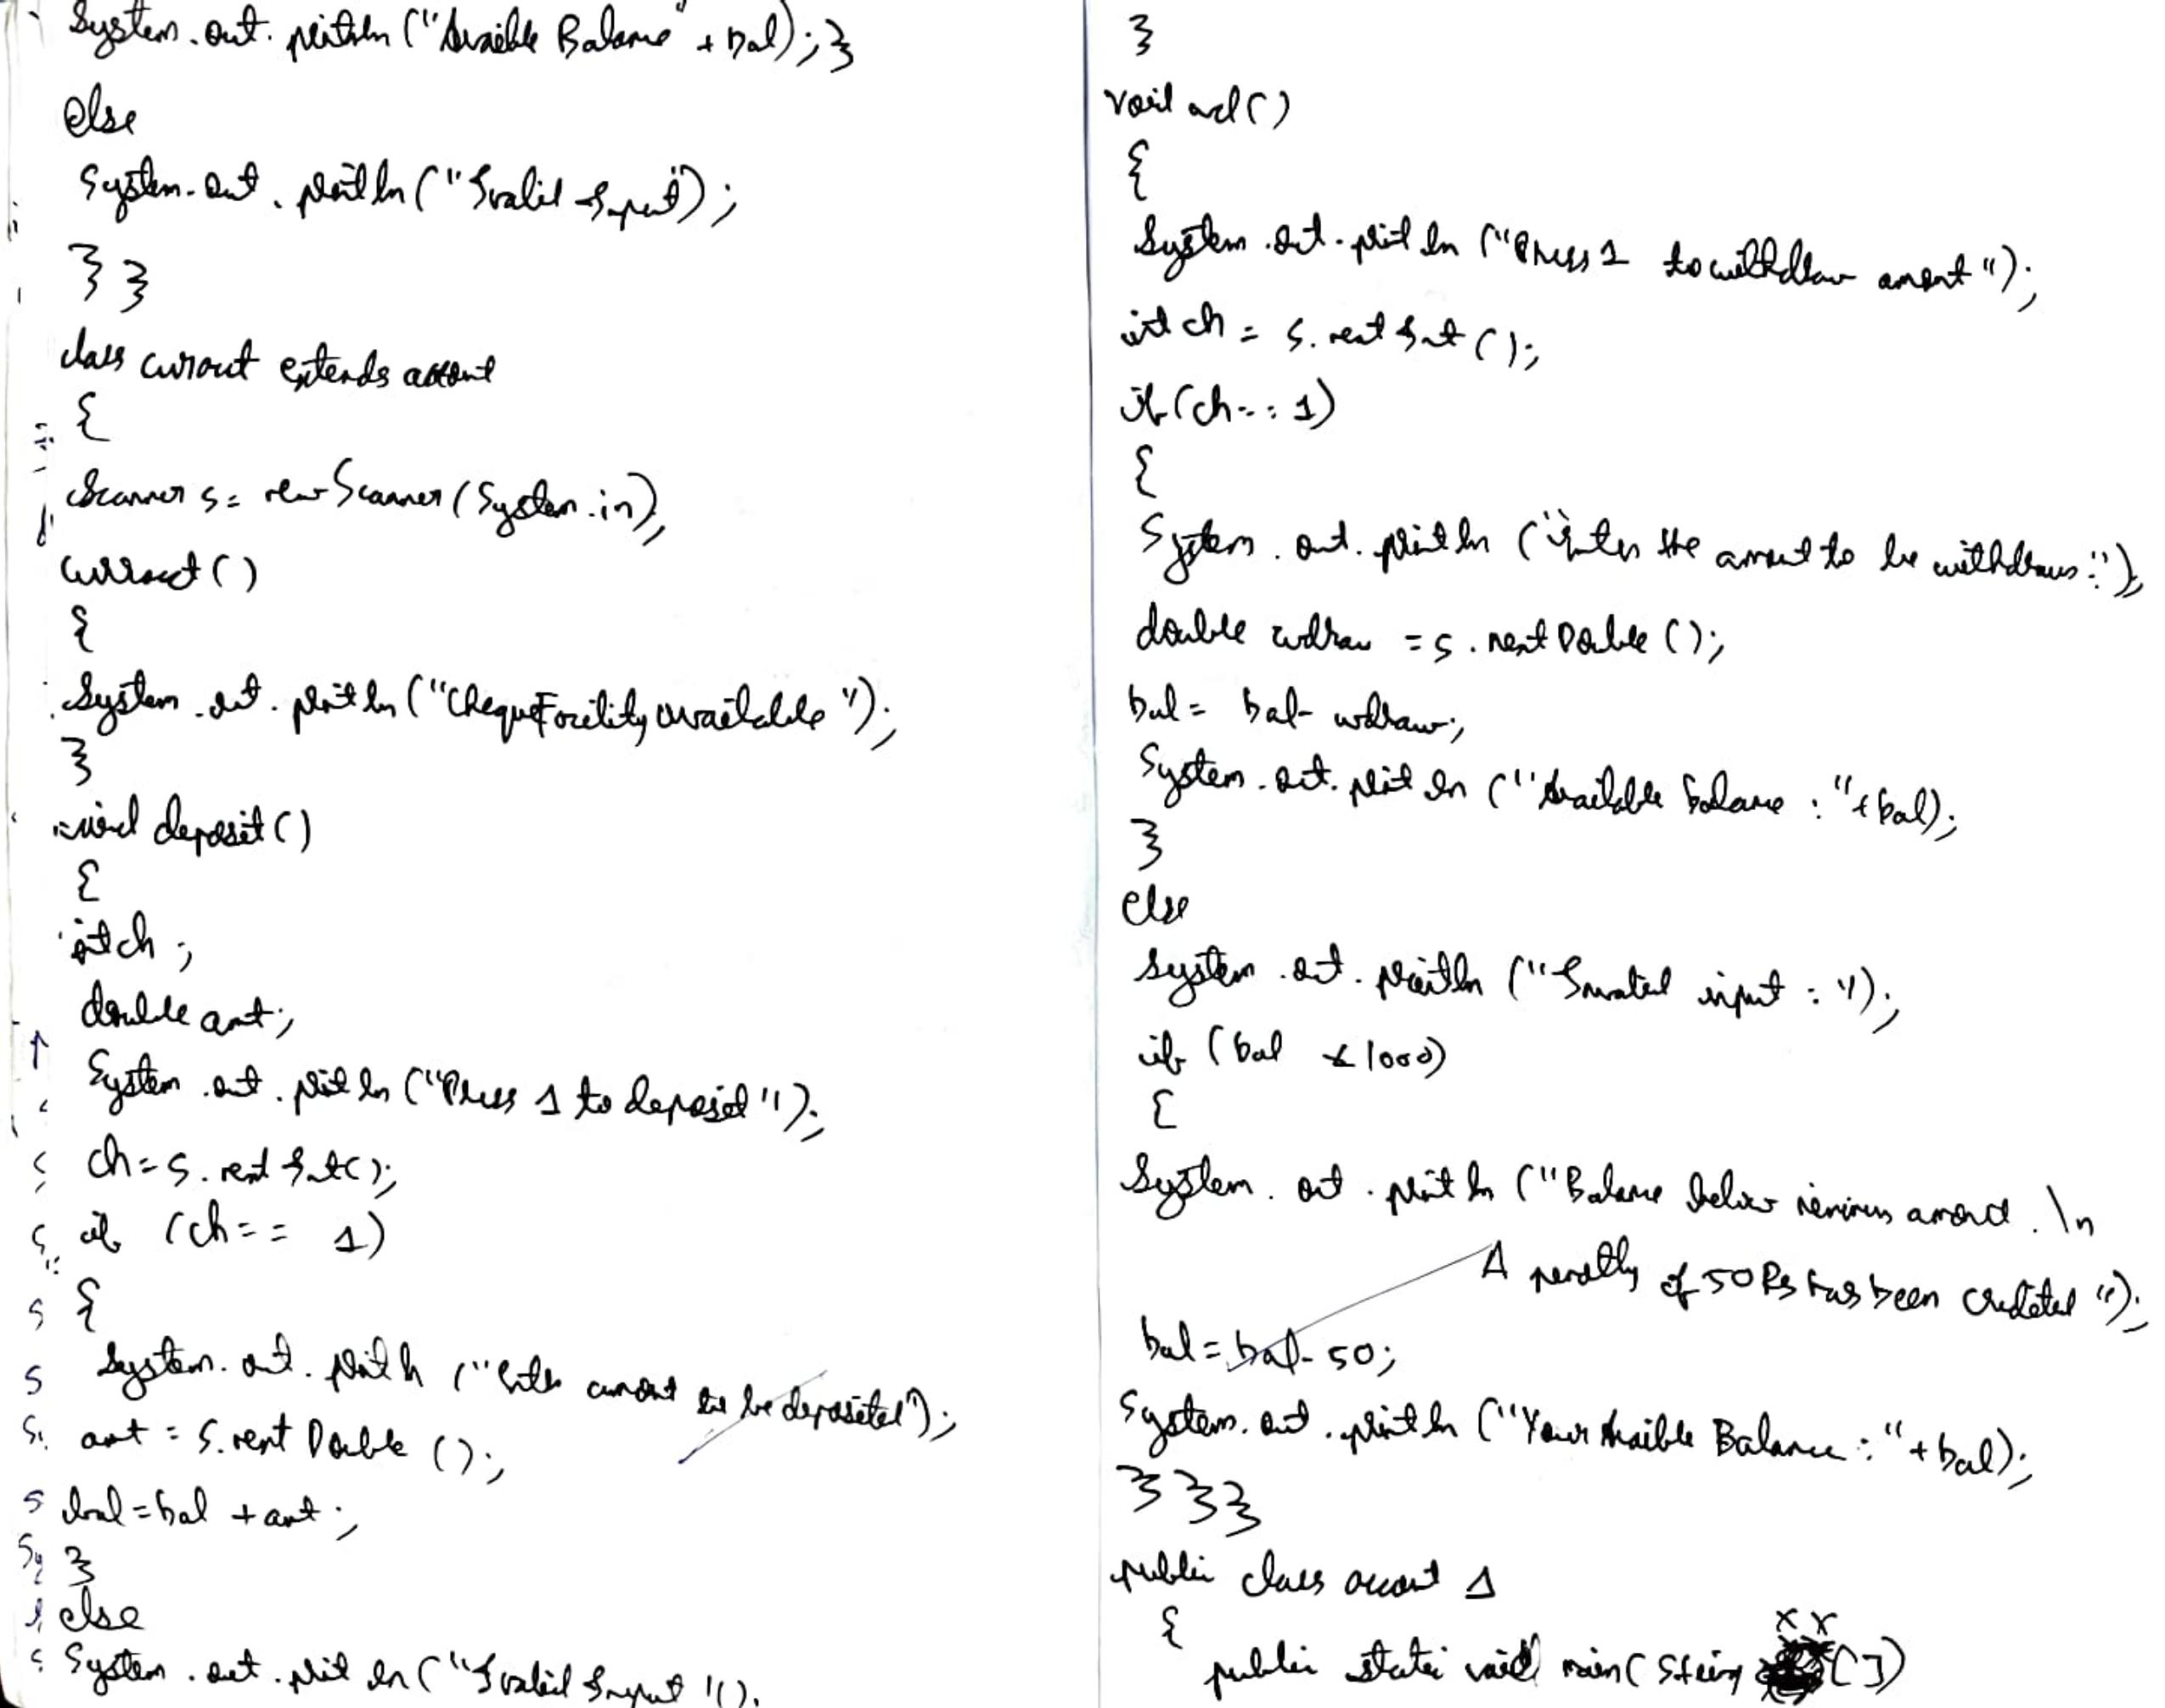 System.out.println("Avaible Balance" + bal); }
else
System.out.println("Ivalid Input");
} }
class current extends account
{
Scanner s = new Scanner(System.in);
current()
{
System.out.println("Cheque Facility available");
}
void deposit()
{
int ch;
double amt;
System.out.println("Press 1 to deposit");
ch = s.nextInt();
if (ch == 1)
{
System.out.println("Enter amount to be deposited");
amt = s.nextDouble();
bal = bal + amt;
}
else
System.out.println("Ivalid Input");
}
void wd()
{
System.out.println("Press 1 to withdraw amount");
int ch = s.nextInt();
if (ch == 1)
{
System.out.println("Enter the amount to be withdrawn:");
double wdraw = s.nextDouble();
bal = bal - wdraw;
System.out.println("Available balance : "+bal);
}
else
System.out.println("Invalid input : ");
if (bal < 1000)
{
System.out.println("Balance below minimum amount. \n
A penalty of 50 Rs has been credited");
bal = bal - 50;
System.out.println("Your Avaible Balance : "+bal);
} } }
public class account 1
{
public static void main(String xx[])